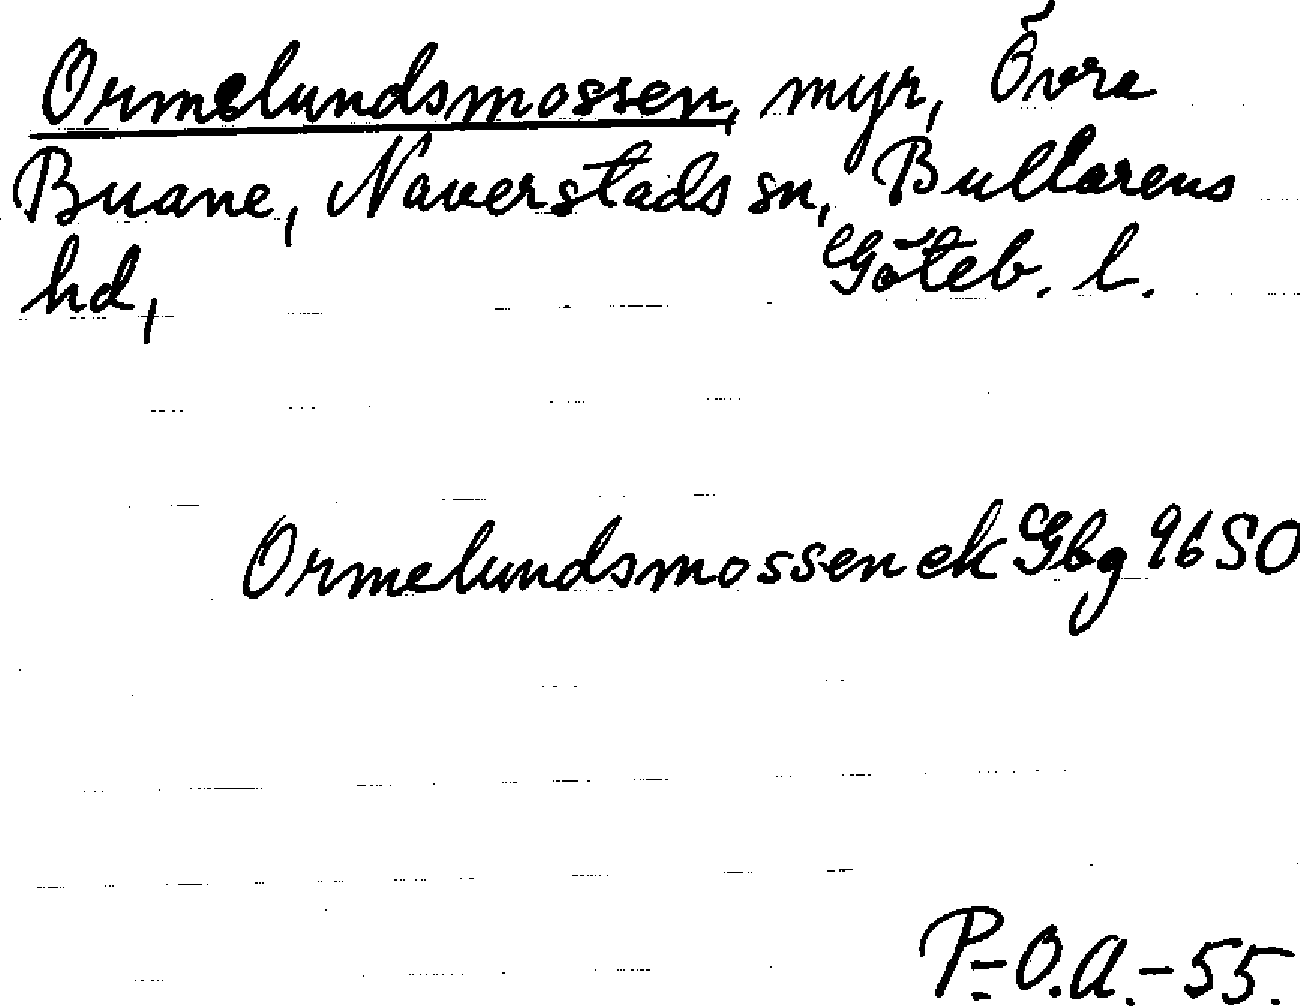 Ormelundsmossen, myr, Övra
Buane, Naverstads sn, Bullarens
hd, Göteb. l.
Ormelundsmossen ek Gbg 96 SO
P.-O.A.-55.